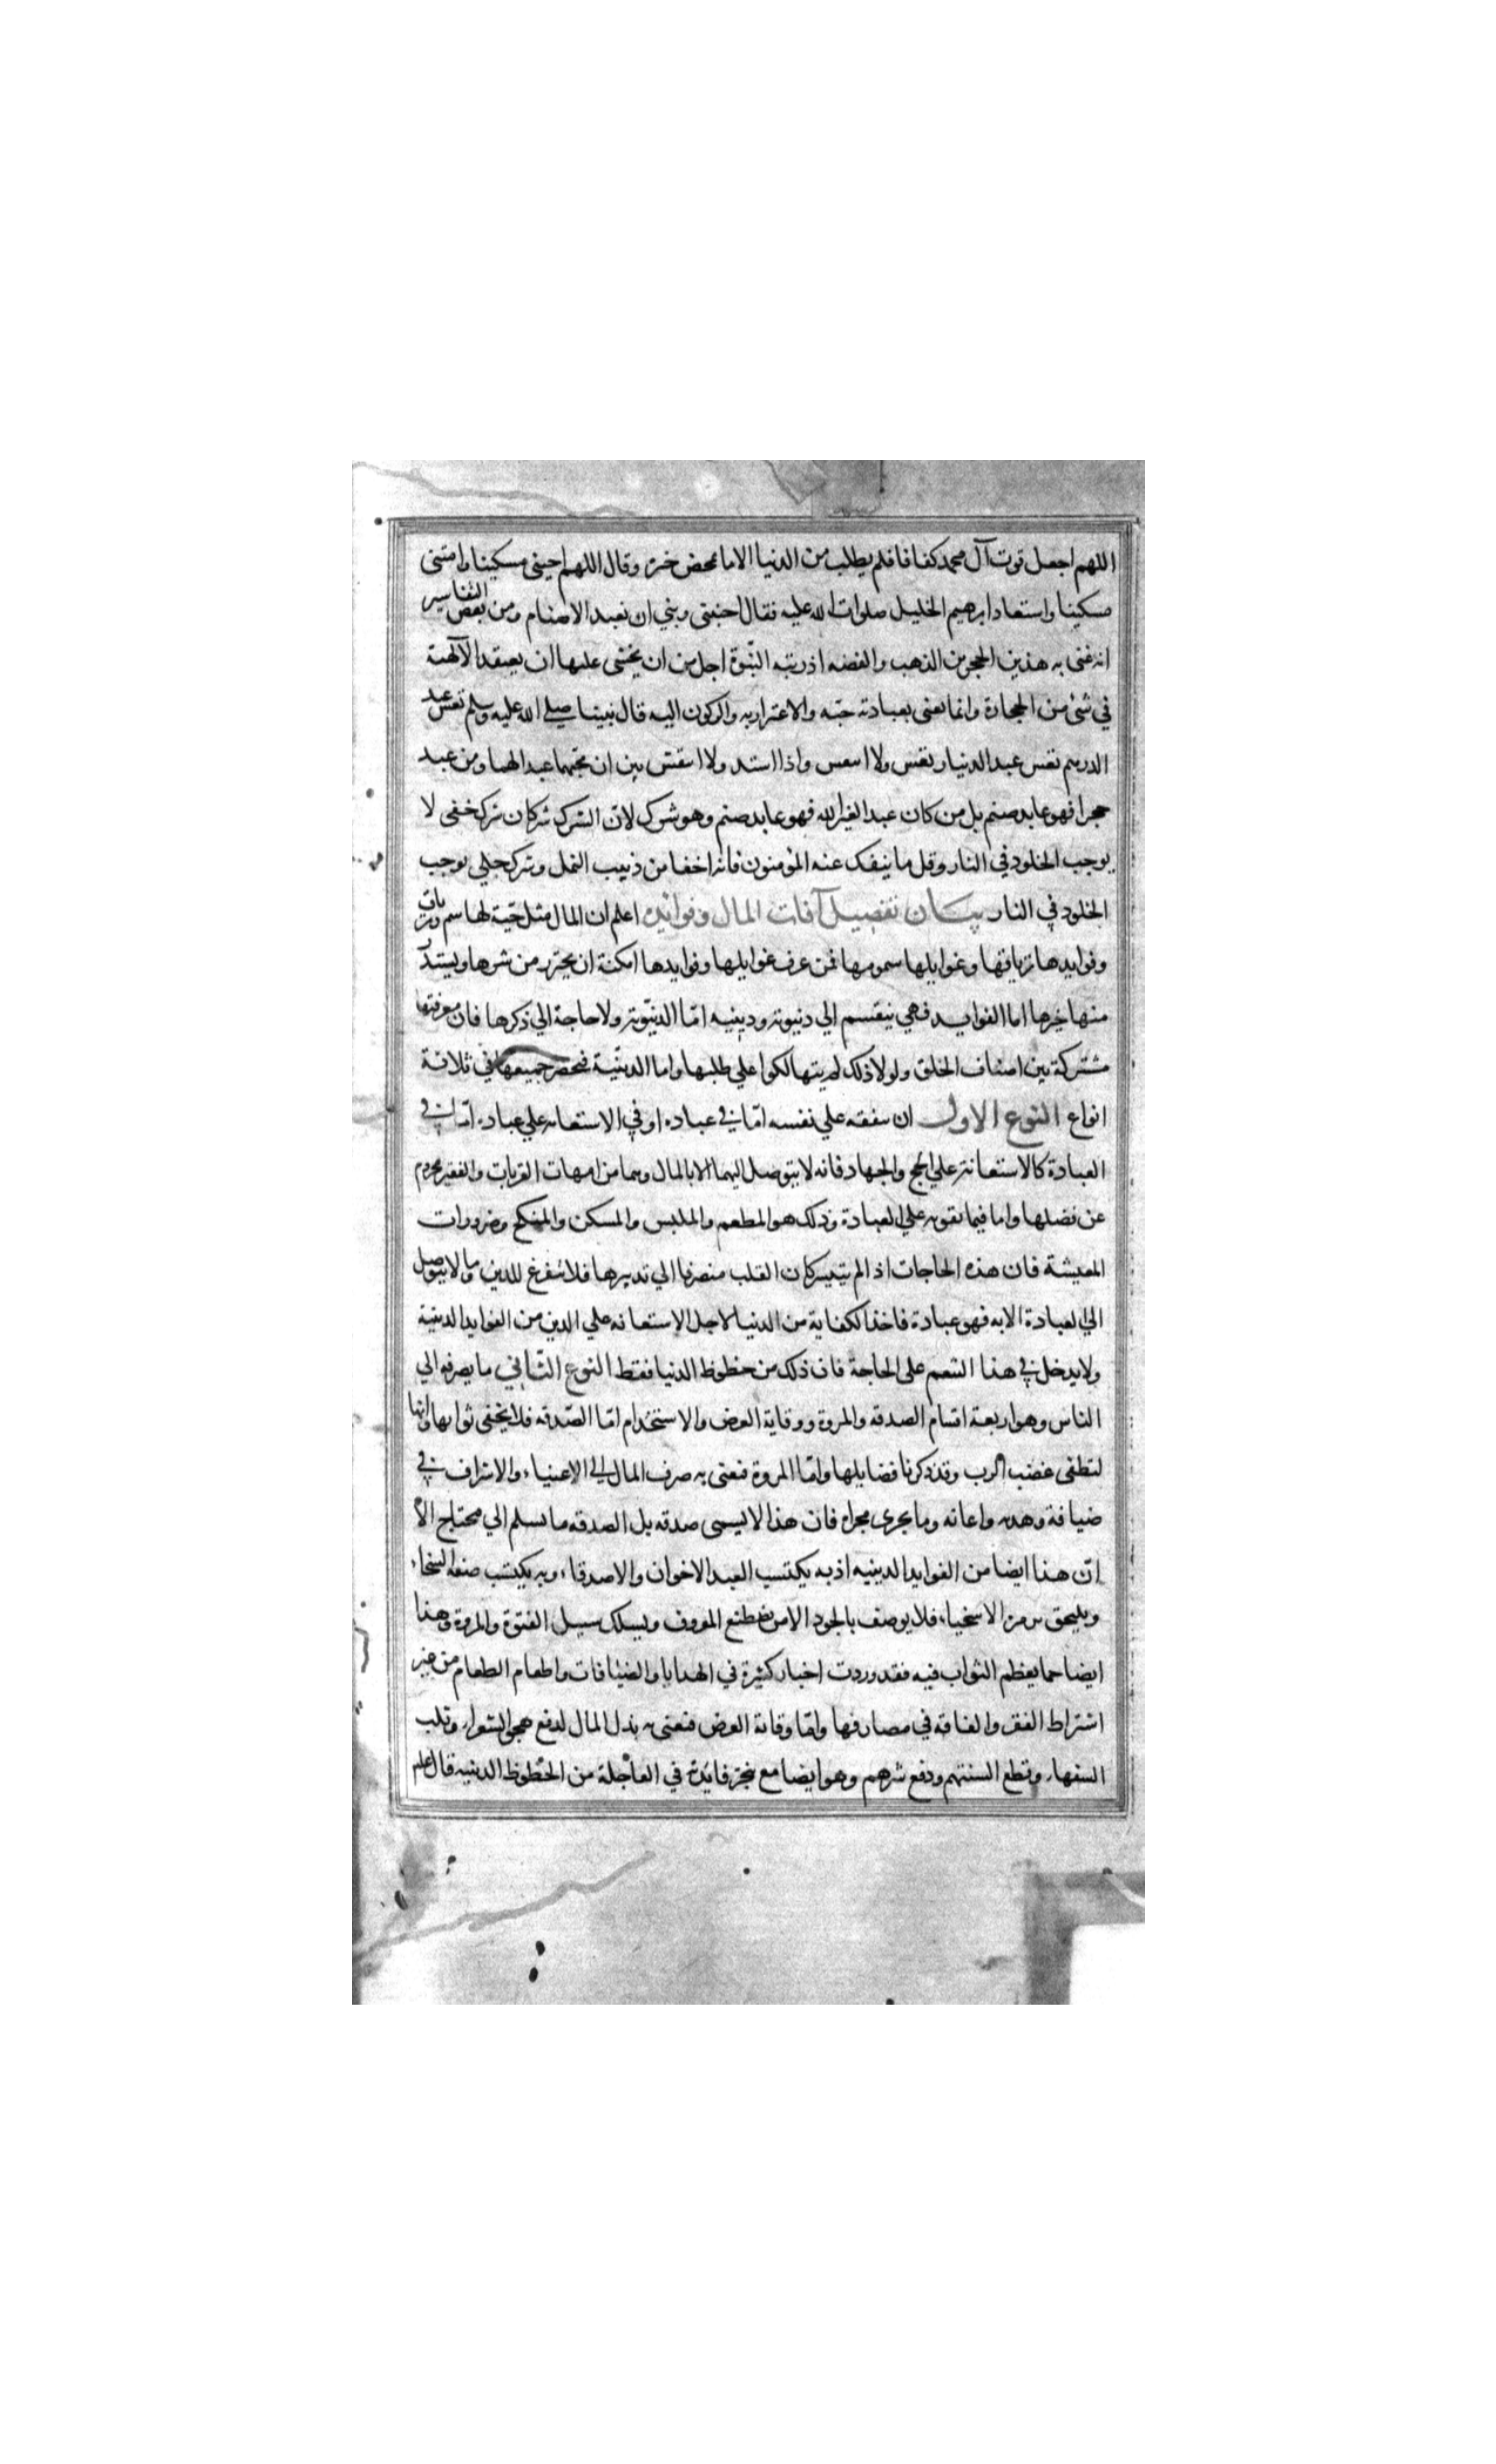 اللهم اجعل قوت آل محمد كفافا فلم يطلب من الدنيا الا ما تمحض خيره وقال اللهم احينى مسكينا وامتنى
مسكينا واستعاد ابرهيم الخليل صلوات الله عليه فقال اجنبنى وبني ان نعبد الاصنام ومن بعض التفاسير
انه عنى به هذين الحجرين الذهب والفضه اذ رتبه النبوة اجل من ان يخشى عليها ان يعتقد الآلهة
في شئ من الحجارة وانما يعنى بعبادته حبه والاغترار به والركون اليه قال نبينا صلى الله عليه وسلم تعس عبد
الدرهم تعس عبد الدنيار تعس ولا انتعش واذا ولا انتقش بين ان محبهما عبد لهما ومن عبد
حجرا فهو عابد صنم بل من كان عبد الغير الله فهو عابد صنم وهو شرك لان الشرك شركان شرك خفى لا
يوجب الخلود في النار وقل ما ينفك عنه المؤمنون فانه اخفا من دبيب النمل وشرك جلي يوجب
الخلود في النار بيان تفصيل آفات المال وفوائده اعلم ان المال مثل حية لها سم وترياق
وفوايدها ترياقها وغوايلها سمومها فمن عرف غوايلها وفوايدها امكنه ان يحترز من شرها ويستدر
منها خيرها اما الفوايد فهي ينقسم الي دنيوية ودينيه امّا الدنيّوية ولا حاجة الي ذكرها فان معرفتها
مشتركة بين اصناف الخلق ولولا ذلك لم يتهالكوا علي طلبها واما الدينّية فتحصر جميعها في ثلاثة
انواع النوع الاول ان ينفقه علي نفسه امّا في عباده او في الاستعانه علي عباده امّا في
العبادة كالاستعانة علي الحج والجهاد فانه لا يتوصل اليهما الا بالمال وهما من امهات القربات والفقير محروم
عن فضلها واما فيما يقويه علي العبادة وذلك هو المطعم والملبس والمسكن والمنكح وضرورات
المعيشة فان هذه الحاجات اذا لم يتيسر كان القلب منصرفا الي تدبيرها فلا يتفرغ للدين وما لا يتوصل
الي العبادة الا به فهو عبادة فاخذ الكفاية من الدنيا لاجل الاستعانه علي الدين من الفوايد الدينية
ولا يدخل في هذا التنعم على الحاجة فان ذلك من حظوظ الدنيا فقط النوع الثّاني ما يصرفه الي
الناس وهو اربعة اقسام الصدقه والمروة ووقاية العرض والاستخدام امّا الصّدقه فلا يخفى ثوابها وانها
لتطفى غضب الرب وقد ذكرنا فضايلها وامّا المروة فنعنى به صرف المال الى الاغنياء والاشراف في
ضيافة وهديه واعانه وما يجرى مجراه فان هذا لا يسمى صدقه بل الصدقه ما يسلم الي محتاج الا
انّ هذا ايضا من الفوايد الدينيه اذ به يكتسب العبد الاخوان والاصدقاء وبه يكتسب صفه السخاء
ويلتحق بزمرة الاسخياء فلا يوصف بالجود الا من يصطنع المعروف ويسلك سبيل الفتوة والمروة وهذا
ايضا مما يعظم الثواب فيه فقد وردت اخبار كثيرة في الهدايا والضيافات واطعام الطعام من غير
اشتراط الفقر والفاقه في مصارفها وامّا وقاية العرض فنعنى به بذل المال لدفع هجو الشعراء وثلب
السفهاء وقطع السنتهم ودفع شرهم وهو ايضا مع تنجز فايدته في العاجلة من الحظوظ الدينيه قال علم